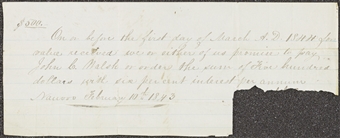 $500.
On or before the first day of March A.D. 1844 for
value received we or either of us promise to pay
John C. Walsh or order the sum of Five hundred
dollars with six per cent interest per annum
February 11th 1843